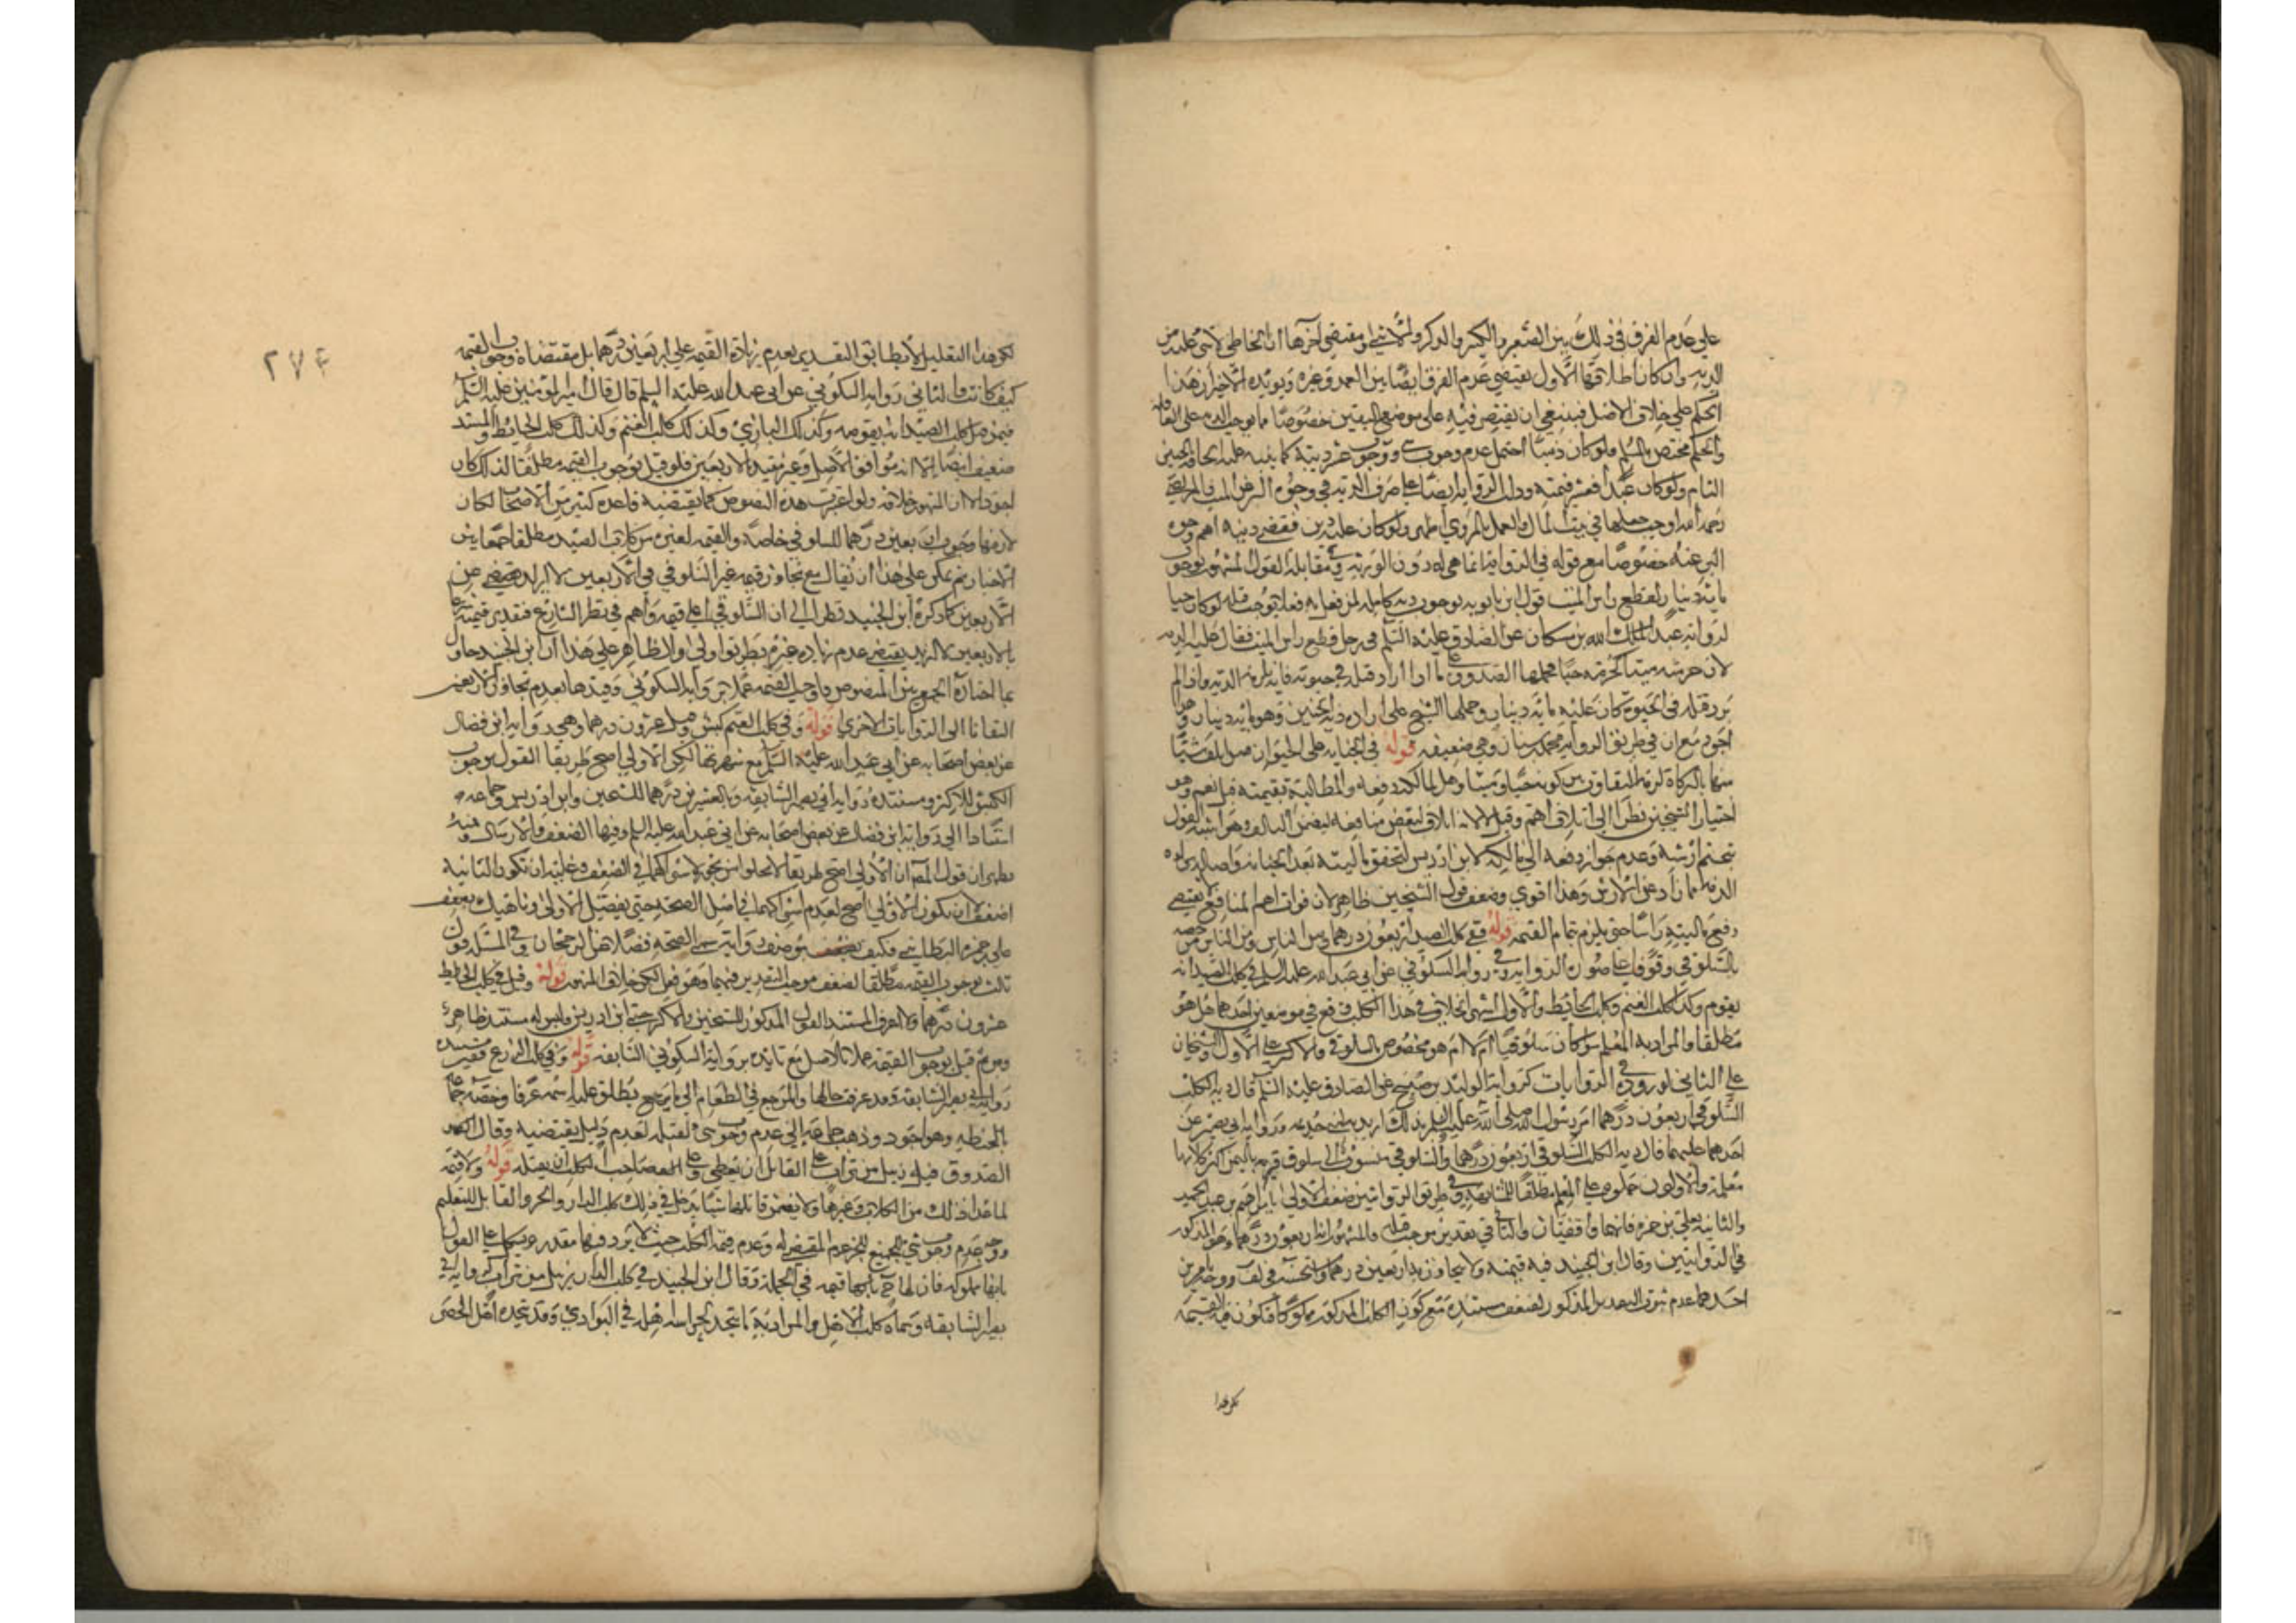 على عدم الفرق في ذلك بين الصغير والكبير والذكر والانثى ومقتضى آخرها ان الخاطي لا شي عليه من
الدية وان كان اطلاقها الاول يقتضي عدم الفرق ايضا بين العمد وغيره ويويده الاخير ان هذا
الحكم على خلاف الاصل فينبغي ان يقتصر فيه على موضع اليقين خصوصا ما يوجب الدية على العاقلة
والحكم مختص بالمسلم فلو كان ذميا احتمل عدم وجوب شي ووجوب عشر ديته كما ينبه عليه الحاقه بالجنين
التام ولو كان عبدا فعشر قيمته ودلت الرواية ايضا على صرف الدية في وجوه البر عن الميت والمرتضى
رحمه الله اوجب جعلها في بيت المال والعمل بالمروي اظهر ولو كان عليه دين فقضي دينه اهم وجوه
البر عنه خصوصا مع قوله في الرواية انما هي له دون الورثة وفي مقابلة القول المشهور بوجوب
ماية دينار لقطع راس الميت قول ابن بابويه بوجوب دية كاملة لمن فعل به فعلا يوجب قتله لو كان حيا
لرواية عبد الله بن مسكان عن الصادق عليه السلم في رجل قطع راس الميت فقال عليه الدية
لان حرمته ميتا كحرمته حيا وحملها الصدوق على ما اذا اراد قتله في حيوته فانه يلزمه الدية وان لم
يرد قتله في الحيوة كان عليه ماية دينار وحملها الشيخ على ارادة دية الجنين وهو ماية دينار وهو
اجود مع ان في طريق الرواية محمد بن سنان وهو ضعيف قوله في الجناية على الحيوان من اتلف شيا
منها بالذكاة لزمه التفاوت بين كونه حيا وميتا وهل لمالكه دفعه والمطالبة بقيمته قيل نعم وهو
اختيار الشيخين نظرا الى اتلاف اهم وقيل لا لانه اتلاف لبعض منافعه فيضمن التالف وهو اشبه القول
بتحتم ارشه وعدم جواز دفعه الى مالكه لابن ادريس لتحقق ماليته بعد الجناية واصالة براءة
الذمة مما زاد عن الارش وهذا اقوى وضعف قول الشيخين ظاهر لان فوات اهم المنافع لا يقتضي
رفع ماليته راسا حتى يلزم تمام القيمة قوله ففي كلب الصيد اربعون درهما ومن الناس من خصه
بالسلوقي وقوفا على صورة الرواية وفي رواية السكوني عن ابي عبد الله عليه السلم في كلب الصيد انه
يقوم وكذا كلب الغنم وكلب الحائط والاول اشهر الخلاف في هذا الكلب وقع في موضعين احدهما هل هو
مطلقا والمراد به المعلم سواء كان سلوقيا ام لا ام هو مخصوص بالسلوقي والاكثر على الاول والشيخان
على الثاني لوروده في الروايات كرواية الوليد بن صبيح عن الصادق عليه السلم قال دية الكلب
السلوقي اربعون درهما امر رسول الله صلى الله عليه وآله بذلك ان يديه لبني خزيمة ورواية ابي بصير عن
احدهما عليهما قال دية الكلب السلوقي اربعون درهما والسلوقي منسوب الى سلوق قرية باليمن اكثر كلابها
معلمة والاولون حملوه على المعلم مطلقا للمشابهة وفي طريق الروايتين ضعف الاولى بابراهيم بن عبد الحميد
والثانية بعلي بن حمزة فانهما واقفيان والثاني في تقدير موجب قتله والمشهور انه اربعون درهما وهو المذكور
في الروايتين وقال ابن الجنيد فيه قيمته ولا يتجاوز بها اربعين درهما واستحسنه في لف ووجه بامرين
احدهما عدم ثبوت التقدير المذكور لضعف مستنده مع كون الكلب المذكور مملوكا فتكون فيه القيمة
لكن هذا
٢٧٤
لكن هذا التعليل لا يطابق التقدير بعدم زيادة القيمة على اربعين درهما بل مقتضاه وجوب القيمة
كيف كانت والثاني رواية السكوني عن ابي عبد الله عليه السلم قال قال امير المومنين عليه السلم
فيمن قتل كلب الصيد انه يقومه وكذلك البازي وكذلك كلب الغنم وكذلك كلب الحايط والمستند
ضعيف ايضا الا انه موافق الاصل وغير مقيد بالاربعين فلو قيل بوجوب القيمة مطلقا لذلك كان
اجود الا ان المشهور خلافه ولو اعتبرت هذه النصوص كما يقتضيه قاعدة كثير من الاصحاب لكان
لازمها وجوب اربعين درهما للسلوقي خاصة والقيمة لغيره من كلاب الصيد مطلقا جمعا بين
الاخبار نعم يمكن على هذا ان يقال مع تجاوز قيمة غير السلوقي عن الاربعين لا يزاد
الاربعين كما ذكره ابن الجنيد نظرا الى ان السلوقي اعلى قيمة واهم في نظر الشارع فتقدير قيمته
بالاربعين لا ازيد يقتضي عدم زيادة غيره بطريق اولى والظاهر على هذا ان ابن الجنيد حاول
بما اختاره الجمع بين النصوص فاوجب القيمة عملا برواية السكوني وقيدها بعدم تجاوز الاربعين
التفاتا الى الروايات الاخرى قوله وفي كلب الغنم كبش وقيل عشرون درهما وهي رواية ابن فضال
عن بعض اصحابه عن ابي عبد الله عليه السلم مع شهرتها لكن الاولى اصح طريقا القول بوجوب
الكبش للاكثر ومستنده رواية ابي بصير السابقة وبالعشرين درهما للشيخين وابن ادريس وجماعة
استنادا الى رواية ابن فضال عن بعض اصحابه عن ابي عبد الله عليه السلم وفيها الضعف والارسال ومنه
يظهر ان قول المصنف ان الاولى اصح طريقا لا يخلو من تجوز لاشتراكهما في الضعف وغايته ان تكون الثانية
اضعف لا ان تكون الاولى اصح لعدم اشتراكهما في اصل الصحة حتى يفضل الاولى وناهيك بضعف
علي بن حمزة البطايني فكيف يوصف روايته بالصحة فضلا عن الرجحان وفي المسئلة قول
ثالث بوجوب القيمة مطلقا لضعف موجب التقدير فيهما وهو قوي لكن خلاف المشهور قوله وقيل في كلب الحايط
عشرون درهما ولا اعرف المستند القول المذكور للشيخين والاكثر حتى ابن ادريس وليس له مستند ظاهرا
ومن ثم قيل بوجوب القيمة عملا بالاصل مع تايده برواية السكوني السابقة قوله وفي كلب الزرع قفيز مستنده
رواية ابي بصير السابقة وقد عرفت حالها والمرجع في الطعام الى ما يصح يطلق عليه اسمه عرفا وخصه جماعة
بالحنطة وهو اجود وذهب جماعة الى عدم وجوب شي لقتله لعدم دليل يقتضيه وقال
الصدوق فيه زبيل من تراب على القاتل ان يعطي وعلى صاحب الكلب ان يقبله قوله ولا قيمة
لما عدا ذلك من الكلاب وغيرها ولا يضمن قاتلها شيا يدخل في ذلك كلب الدار والجرو القابل للتعليم
ووجه عدم وجوب شي للجميع للجرو عدم المقتضي له وعدم قيمة الكلب حيث لا يرد فيها مقدر ويشكل على القول
بانها مملوكة فان لها ح باسرها قيمة في الجملة وقال ابن الجنيد في كلب الدار زبيل من تراب لرواية ابي
بصير السابقة وسماه كلب الاهل والمراد به ما يتخذ لحراسة اهله في البوادي وقد يتخذه اهل الحضر